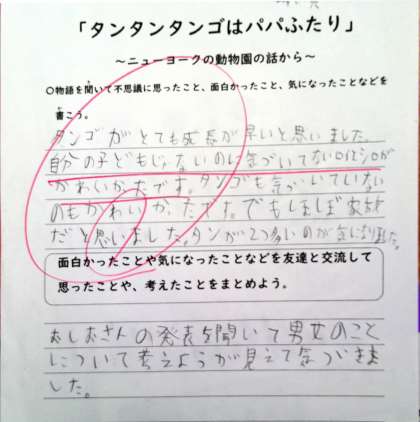 「タンタンタンゴはパパふたり」
～ニューヨークの動物園の話から～
○物語を聞いて不思議に思ったこと、面白かったこと、気になったことなどを
書こう。
タンゴがとても成長が早いと思いました。
自分の子どもじゃないのに気づいてないロイとシロが
かわいかったです。タンゴも気づいていない
のもかわいかったです。でもほぼ家族
だと思いました。タンが2つ多いのが気になりました。
面白かったことや気になったことなどを友達と交流して
思ったことや、考えたことをまとめよう。
さんの発表を聞いて男女のこと
について考えようが見えて気づきま
した。